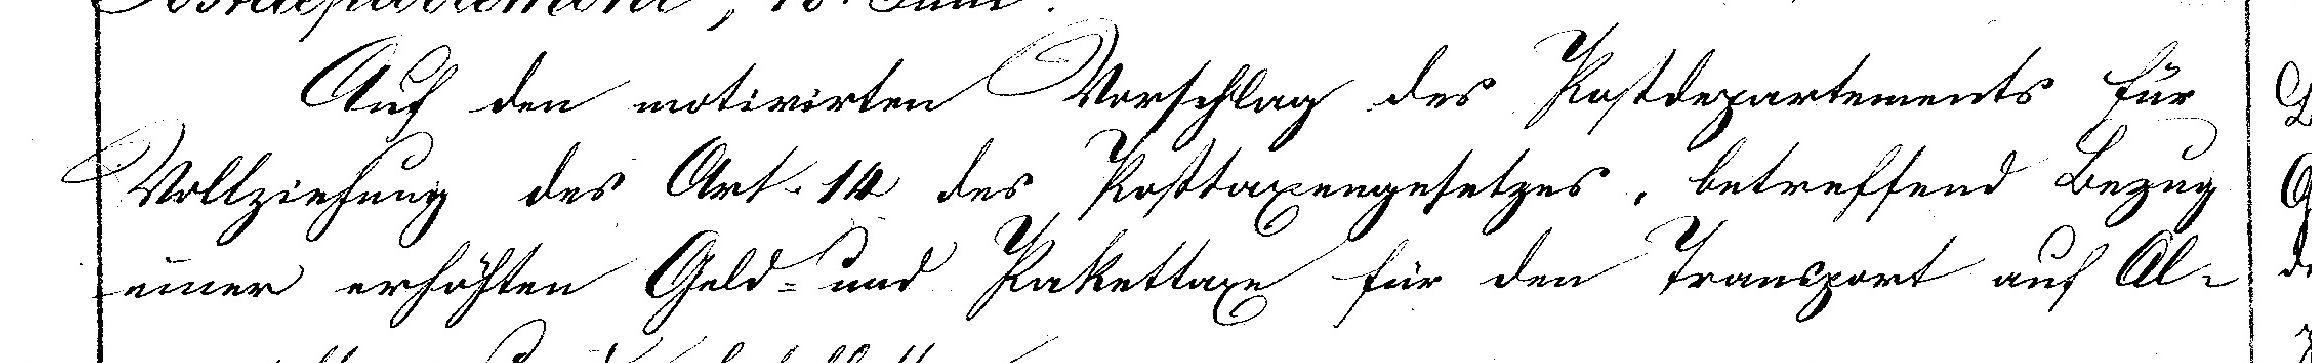 Postdepartement, 18. Juni.
Auf den motivirten Vorschlag des Postdepartements für
Vollziehung des Art. 14 des Posttaxengesetzes, betreffend Bezug
einer erhöhten Geld- und Pakettaxe für den Transport auf Al-